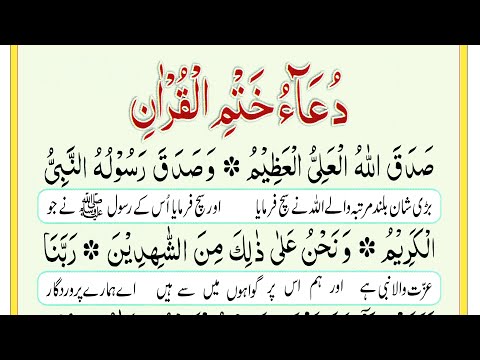 دُعَآءُ خَتْمِ الْقُرْاٰنِ
صَدَقَ اللهُ الْعَلِيُّ الْعَظِيْمُ ✽ وَصَدَقَ رَسُوْلُهُ النَّبِيُّ
بڑی شان بلند مرتبہ والے اللہ نے سچ فرمایا اور سچ فرمایا اُس کے رسول ﷺ نے جو
الْكَرِيْمُ ✽ وَنَحْنُ عَلٰى ذٰلِكَ مِنَ الشّٰهِدِيْنَ ✽ رَبَّنَا
عزّت والا نبی ہے اور ہم اس پر گواہوں میں سے ہیں اے ہمارے پروردگار